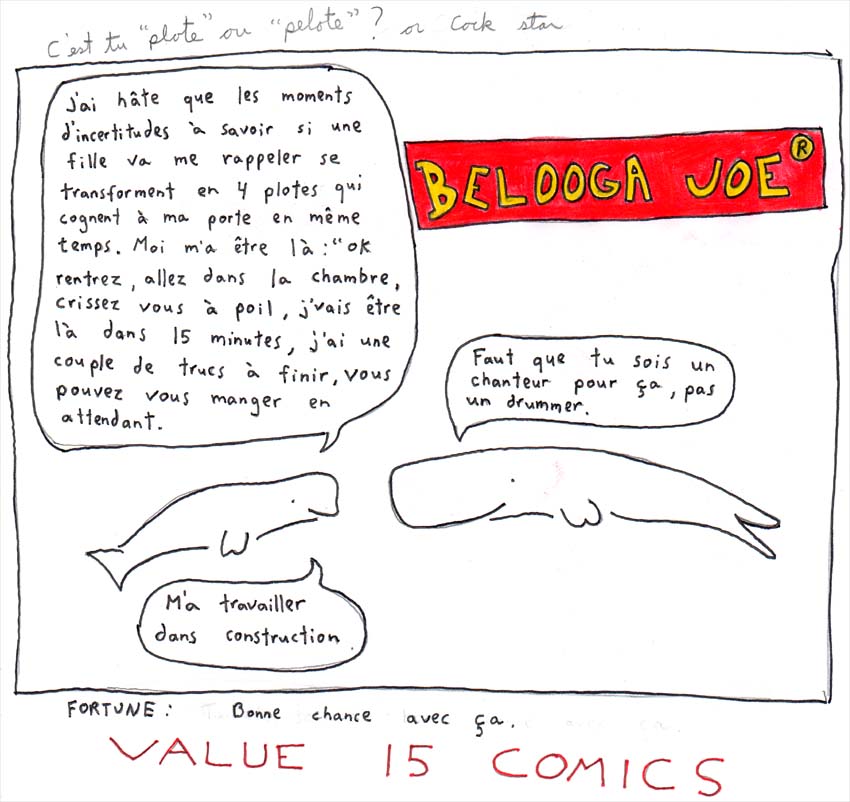 C'est tu "plote" ou "pelote" ? or Cock star
J'ai hâte que les moments
d'incertitudes à savoir si une
fille va me rappeler se
transforment en 4 plotes qui
cognent à ma porte en même
temps. Moi m'a être là : "ok
rentrez, allez dans la chambre,
crissez vous à poil, j'vais être
là dans 15 minutes, j'ai une
couple de trucs à finir, vous
pouvez vous manger en
attendant.
BELOOGA JOE®
Faut que tu sois un
chanteur pour ça, pas
un drummer.
M'a travailler
dans construction.
FORTUNE : Bonne chance avec ça.
VALUE 15 COMICS